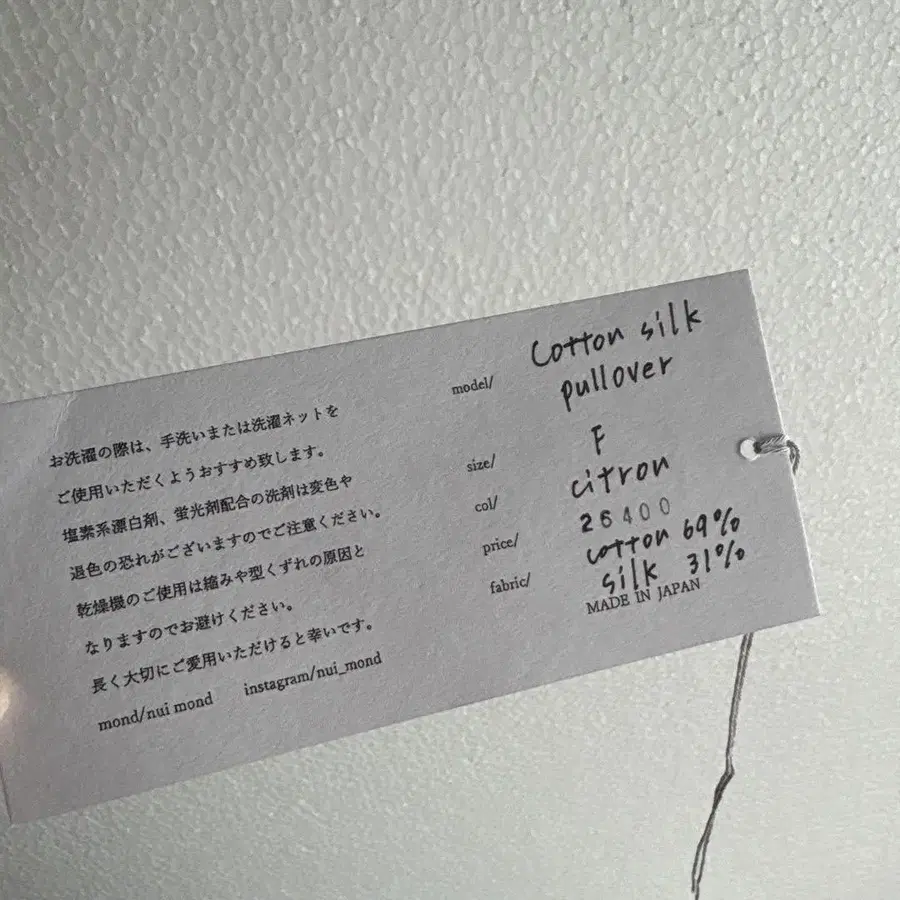 お洗濯の際は、手洗いまたは洗濯ネットを
ご使用いただくようおすすめ致します。
塩素系漂白剤、蛍光剤配合の洗剤は変色や
退色の恐れがございますのでご注意ください。
乾燥機のご使用は縮みや型くずれの原因と
なりますのでお避けください。
長く大切にご愛用いただけると幸いです。
mond/nui mond instagram/nui_mond
model/ Cotton silk
pullover
size/ F
col/ citron
price/ 26400
fabric/ cotton 69%
silk 31%
MADE IN JAPAN